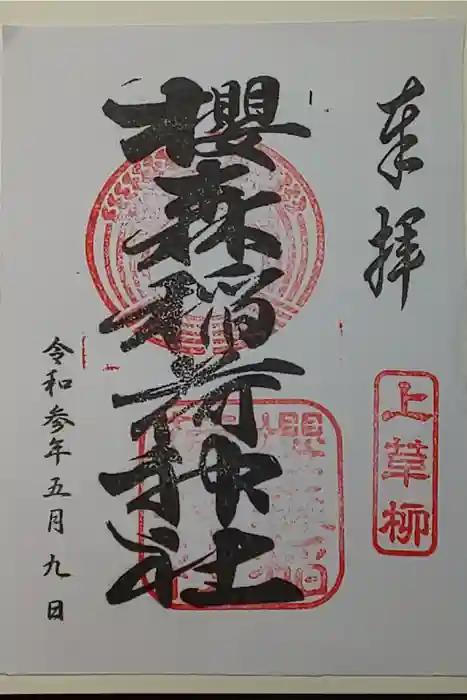 奉拝
上草柳
櫻森稲荷神社
令和参年五月九日